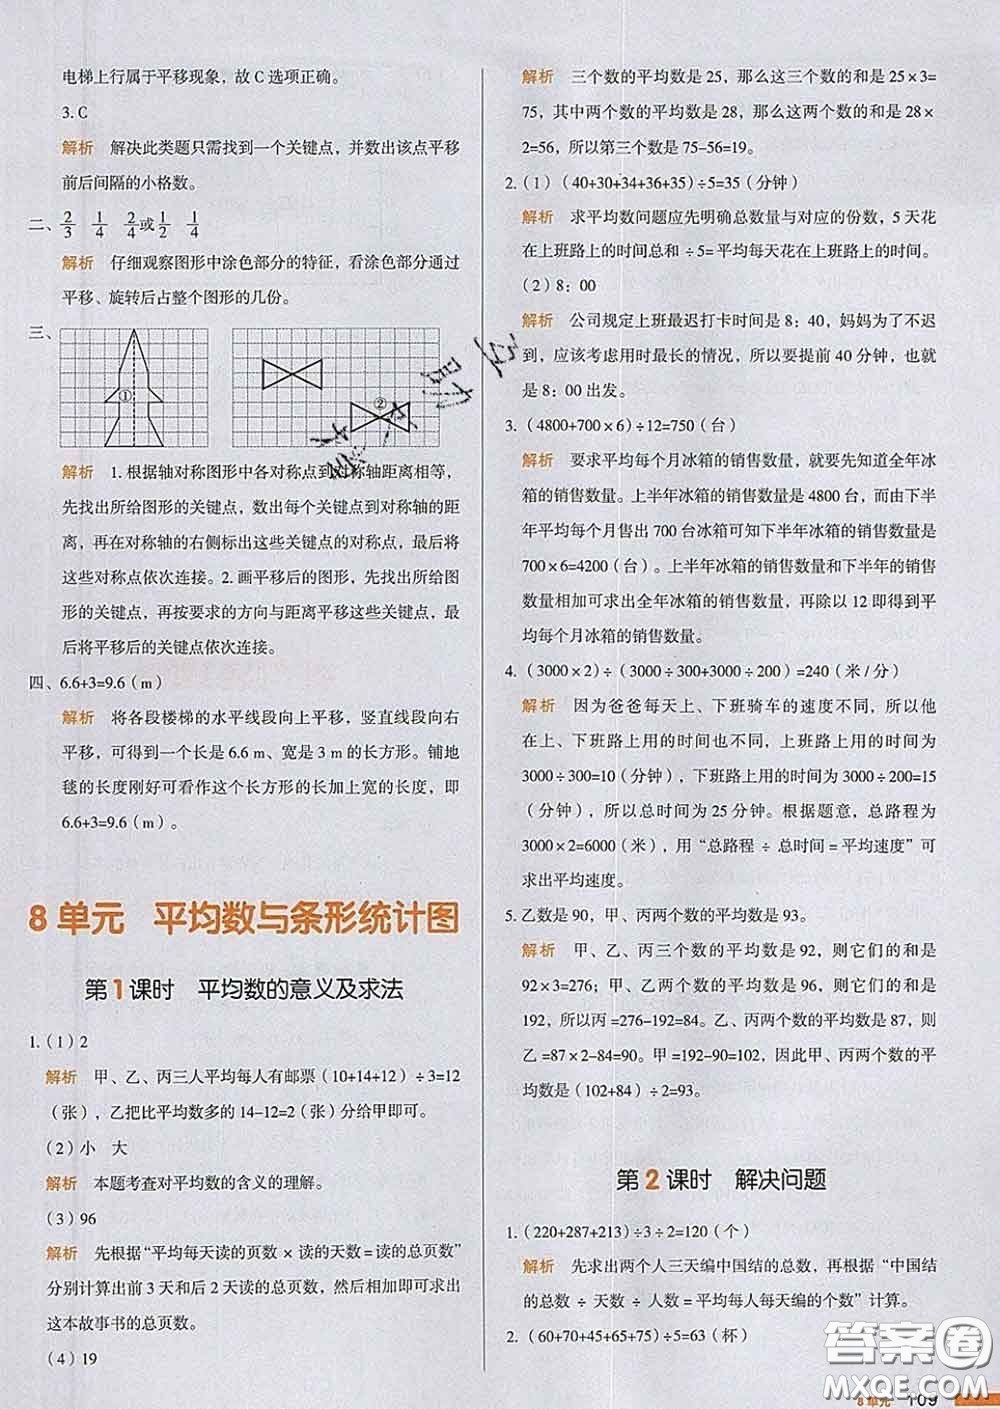 电梯上行属于平移现象，故 C 选项正确。
3. C
解析 解决此类题只需找到一个关键点，并数出该点平移
前后间隔的小格数。
二、2/3 1/4 2/4或1/2 1/4
解析 仔细观察图形中涂色部分的特征，看涂色部分通过
平移、旋转后占整个图形的几份。
三、
①
②
解析 1. 根据轴对称图形中各对称点到对称轴距离相等，
先找出所给图形的关键点，数出每个关键点到对称轴的距
离，再在对称轴的右侧标出这些关键点的对称点，最后将
这些对称点依次连接。2. 画平移后的图形，先找出所给图
形的关键点，再按要求的方向与距离平移这些关键点，最
后将平移后的关键点依次连接。
四、6.6+3=9.6（m）
解析 将各段楼梯的水平线段向上平移，竖直线段向右
平移，可得到一个长是 6.6 m、宽是 3 m 的长方形。铺地
毯的长度刚好可看作这个长方形的长加上宽的长度，即
6.6+3=9.6（m）。
8 单元 平均数与条形统计图
第 1 课时 平均数的意义及求法
1.（1）2
解析 甲、乙、丙三人平均每人有邮票（10+14+12）÷3=12
（张），乙把比平均数多的 14-12=2（张）分给甲即可。
（2）小 大
解析 本题考查对平均数的含义的理解。
（3）96
解析 先根据“平均每天读的页数 × 读的天数 = 读的总页数”
分别计算出前 3 天和后 2 天读的总页数，然后相加可求出
这本故事书的总页数。
（4）19
解析 三个数的平均数是 25，那么这三个数的和是 25×3=
75，其中两个数的平均数是 28，那么这两个数的和是 28×
2=56，所以第三个数是 75-56=19。
2.（1）（40+30+34+36+35）÷5=35（分钟）
解析 求平均数问题应先明确总数量与对应的份数，5 天花
在上班路上的时间总和 ÷5= 平均每天花在上班路上的时间。
（2）8：00
解析 公司规定上班最迟打卡时间是 8：40，妈妈为了不迟
到，应该考虑用时最长的情况，所以要提前 40 分钟，也就
是 8：00 出发。
3.（4800+700×6）÷12=750（台）
解析 要求平均每个月冰箱的销售数量，就要先知道全年冰
箱的销售数量。上半年冰箱的销售数量是 4800 台，而由下半
年平均每个月售出 700 台冰箱可知下半年冰箱的销售数量是
700×6=4200（台）。上半年冰箱的销售数量和下半年冰箱的销售
数量相加可求出全年冰箱的销售数量，再除以 12 即得到平
均每个月冰箱的销售数量。
4.（3000×2）÷（3000÷300+3000÷200）=240（米/分）
解析 因为爸爸每天上、下班骑车的速度不同，所以他
在上、下班路上用的时间也不同，上班路上用的时间为
3000÷300=10（分钟），下班路上用的时间为 3000÷200=15
（分钟），所以总时间为 25 分钟。根据题意，总路程为
3000×2=6000（米），用“总路程 ÷ 总时间 = 平均速度”可
求出平均速度。
5. 乙数是 90，甲、丙两个数的平均数是 93。
解析 甲、乙、丙三个数的平均数是 92，则它们的和是
92×3=276；甲、乙两个数的平均数是 96，则它们的和是
192，所以丙 =276-192=84。乙、丙两个数的平均数是 87，则
乙 =87×2-84=90。甲 =192-90=102，因此甲、丙两个数的平
均数是（102+84）÷2=93。
第 2 课时 解决问题
1.（220+287+213）÷3÷2=120（个）
解析 先求出两个人三天编中国结的总数，再根据“中国结
的总数 ÷ 天数 ÷ 人数 = 平均每人每天编的个数”计算。
2.（60+70+45+65+75）÷5=63（杯）
答案圈
MXQE.COM
8 单元 109